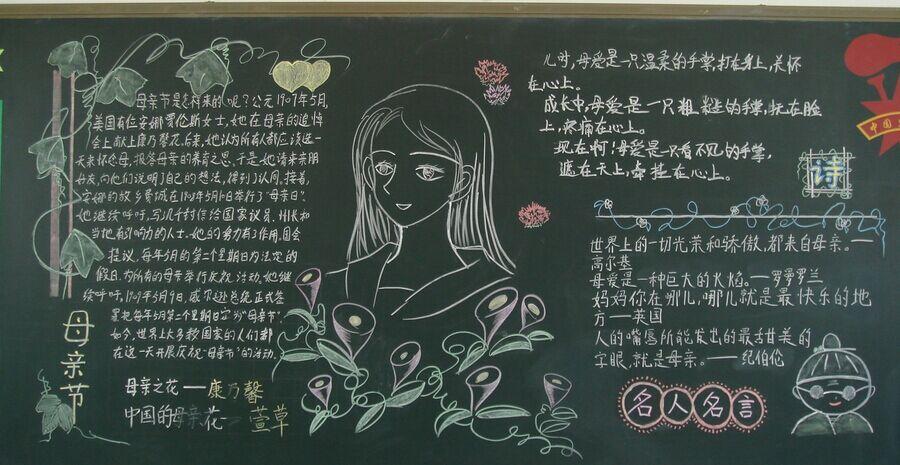 母亲节是怎样来的呢？公元1907年5月，
美国有位安娜·罗伦斯女士，她在母亲的追悼
会上献上康乃馨花，后来，她认为所有人都应该选一
天来怀念母，报答母亲的养育之恩，于是她请来亲朋
好友，向他们说明了自己的想法，得到了认同。接着，
安娜的故乡费城在1908年5月10日举行了“母亲日”。
她继续呼吁，写几千封信给国家议员、州长和
当地有影响力的人士。她的努力有了作用，国会
提议，每年5月的第二个星期日为法定的
假日，为所有的母亲举行庆祝活动。她继
续呼吁，
里把每年5月第二个星期日定为“母亲节”。
如今，世界上大多数国家的人们都
在这一天开展庆祝“母亲节”的活动。
母亲之花——康乃馨
中国的母亲花——萱草
母亲节
儿时，母爱是一只温柔的手掌，打在身上，关怀
在心上。
成长中，母爱是一只粗糙的手掌，抚在脸
上，疼痛在心上。
现在啊！母爱是一只看不见的手掌，
遮在天上，牵挂在心上。
诗
世界上的一切光荣和骄傲，都来自母亲。——
高尔基
母爱是一种巨大的火焰。——罗曼罗兰
妈妈你在哪儿，哪儿就是最快乐的地
方——英国
人的嘴唇所能发出的最甜美的
字眼，就是母亲。——纪伯伦
名人名言
中国